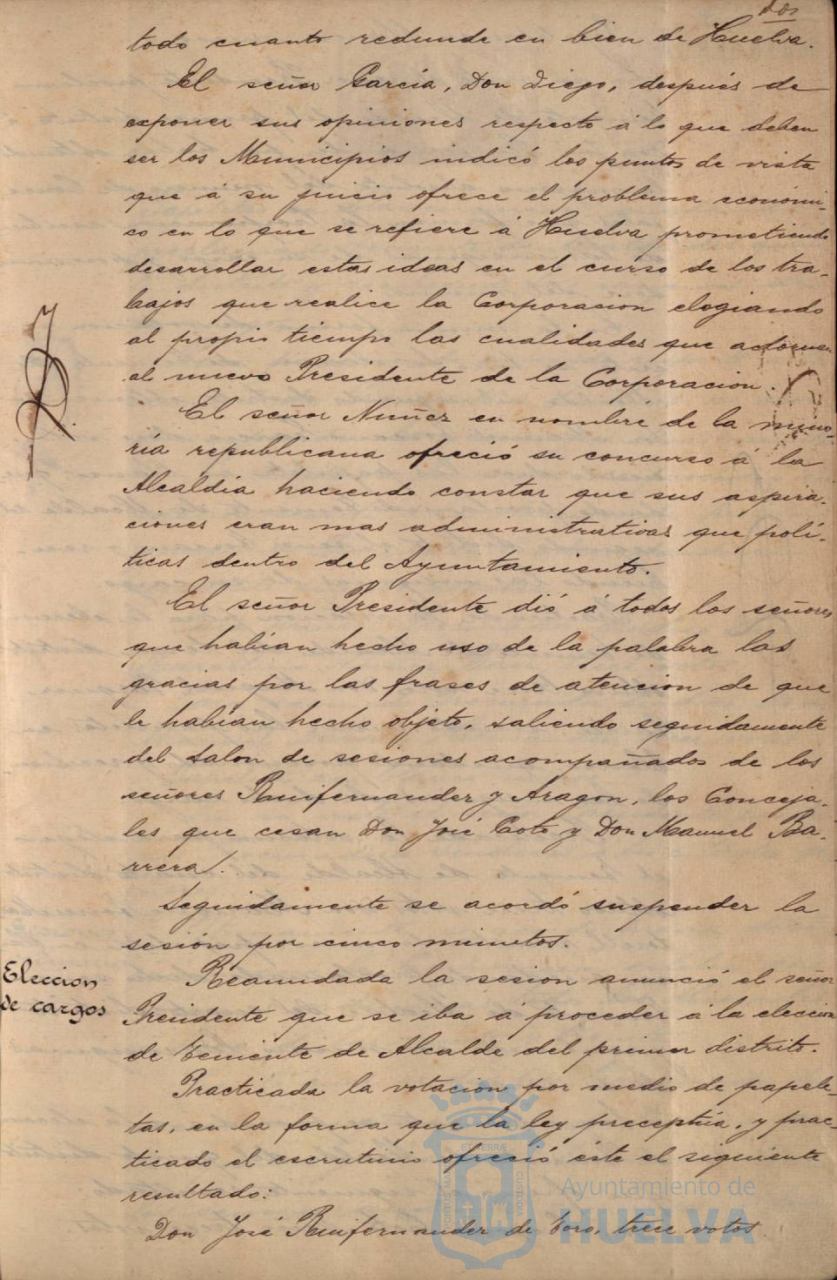 dos
todo cuanto redunde en bien de Huelva.
El señor García, Don Diego, después de
exponer sus opiniones respecto á lo que deben
ser los Municipios indicó los puntos de vista
que á su juicio ofrece el problema económi-
co en lo que se refiere á Huelva prometiendo
desarrollar estas ideas en el curso de los tra-
bajos que realice la Corporacion elogiando
al propio tiempo las cualidades que adornan
al nuevo Presidente de la Corporacion.
El señor Nuñez en nombre de la mino-
ría republicana ofreció su concurso á la
Alcaldía haciendo constar que sus aspira-
ciones eran mas administrativas que polí-
ticas dentro del Ayuntamiento.
El señor Presidente dió á todos los señores
que habían hecho uso de la palabra las
gracias por las frases de atencion de que
le habían hecho objeto, saliendo seguidamente
del salon de sesiones acompañados de los
señores Ruifernandez y Aragon, los Conceja-
les que cesan Don José Coto y Don Manuel Ba-
rrera.
Seguidamente se acordó suspender la
sesión por cinco minutos.
Eleccion
de cargos
Reanudada la sesion anunció el señor
Presidente que se iba á proceder á la eleccion
de teniente de Alcalde del primer distrito.
Practicada la votacion por medio de papele-
tas, en la forma que la ley preceptúa, y prac-
ticado el escrutinio ofreció éste el siguiente
resultado:
Don José Ruifernandez de Toro, trece votos
Ayuntamiento de
HUELVA